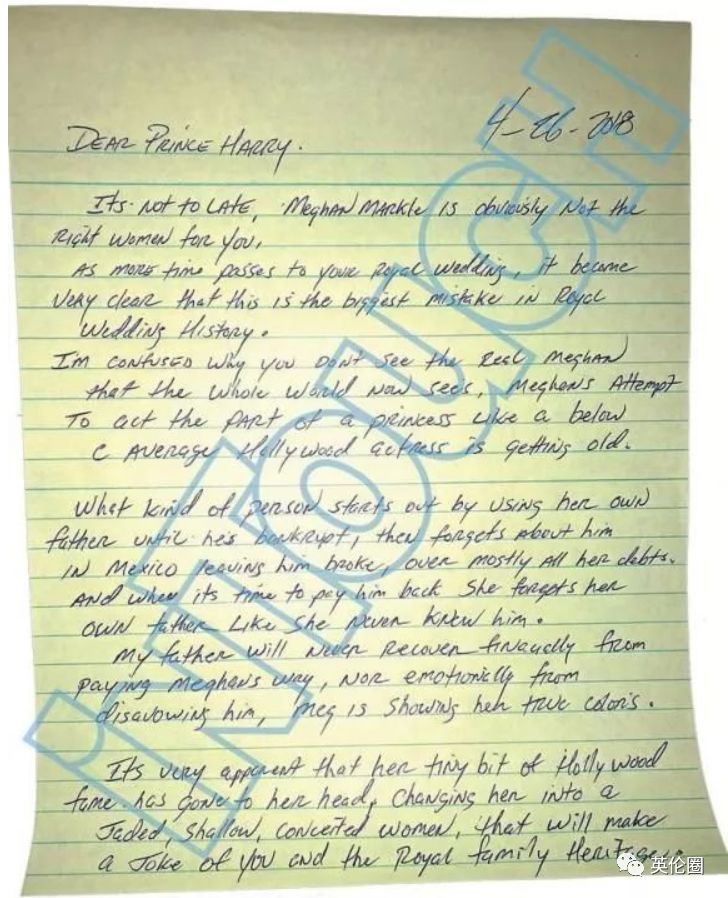 4-26-2018
DEAR PRINCE HARRY.
Its not to LATE, Meghan Markle is obviously Not the
Right women for you,
As more time passes to your Royal wedding, it became
very clear that this is the biggest mistake in Royal
wedding History.
I'm confused why you Don't see the Real Meghan
that the whole world now sees, Meghan's Attempt
To act the part of a princess like a below
C average Hollywood actress is getting old.
What kind of person starts out by using her own
father until he's bankrupt, then forgets about him
in Mexico leaving him broke, over mostly all her debts.
And when its time to pay him back she forgets her
own father like she never knew him.
My father will never recover financially from
paying Meghans way, nor emotionally from
disavowing him, Meg is showing her true color's.
Its very apparent that her tiny bit of Hollywood
fame has gone to her head, Changing her into a
Jaded, Shallow, conceited women, that will make
a Joke of you and the Royal family Heritage.
InTouch
英伦圈